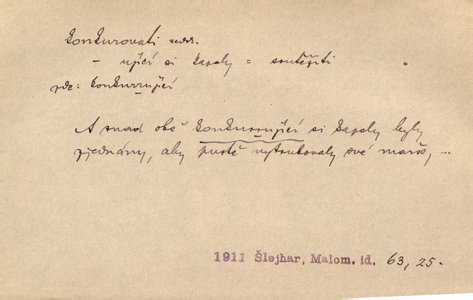 konkurovati nedok.
– ující si kapely = soutěžiti
konkurrující
A snad obě konkurrující si kapely byly
zjednány, aby pustě vytrubovaly své marše, ...
1911 Šlejhar, Malom. id. 63, 25.